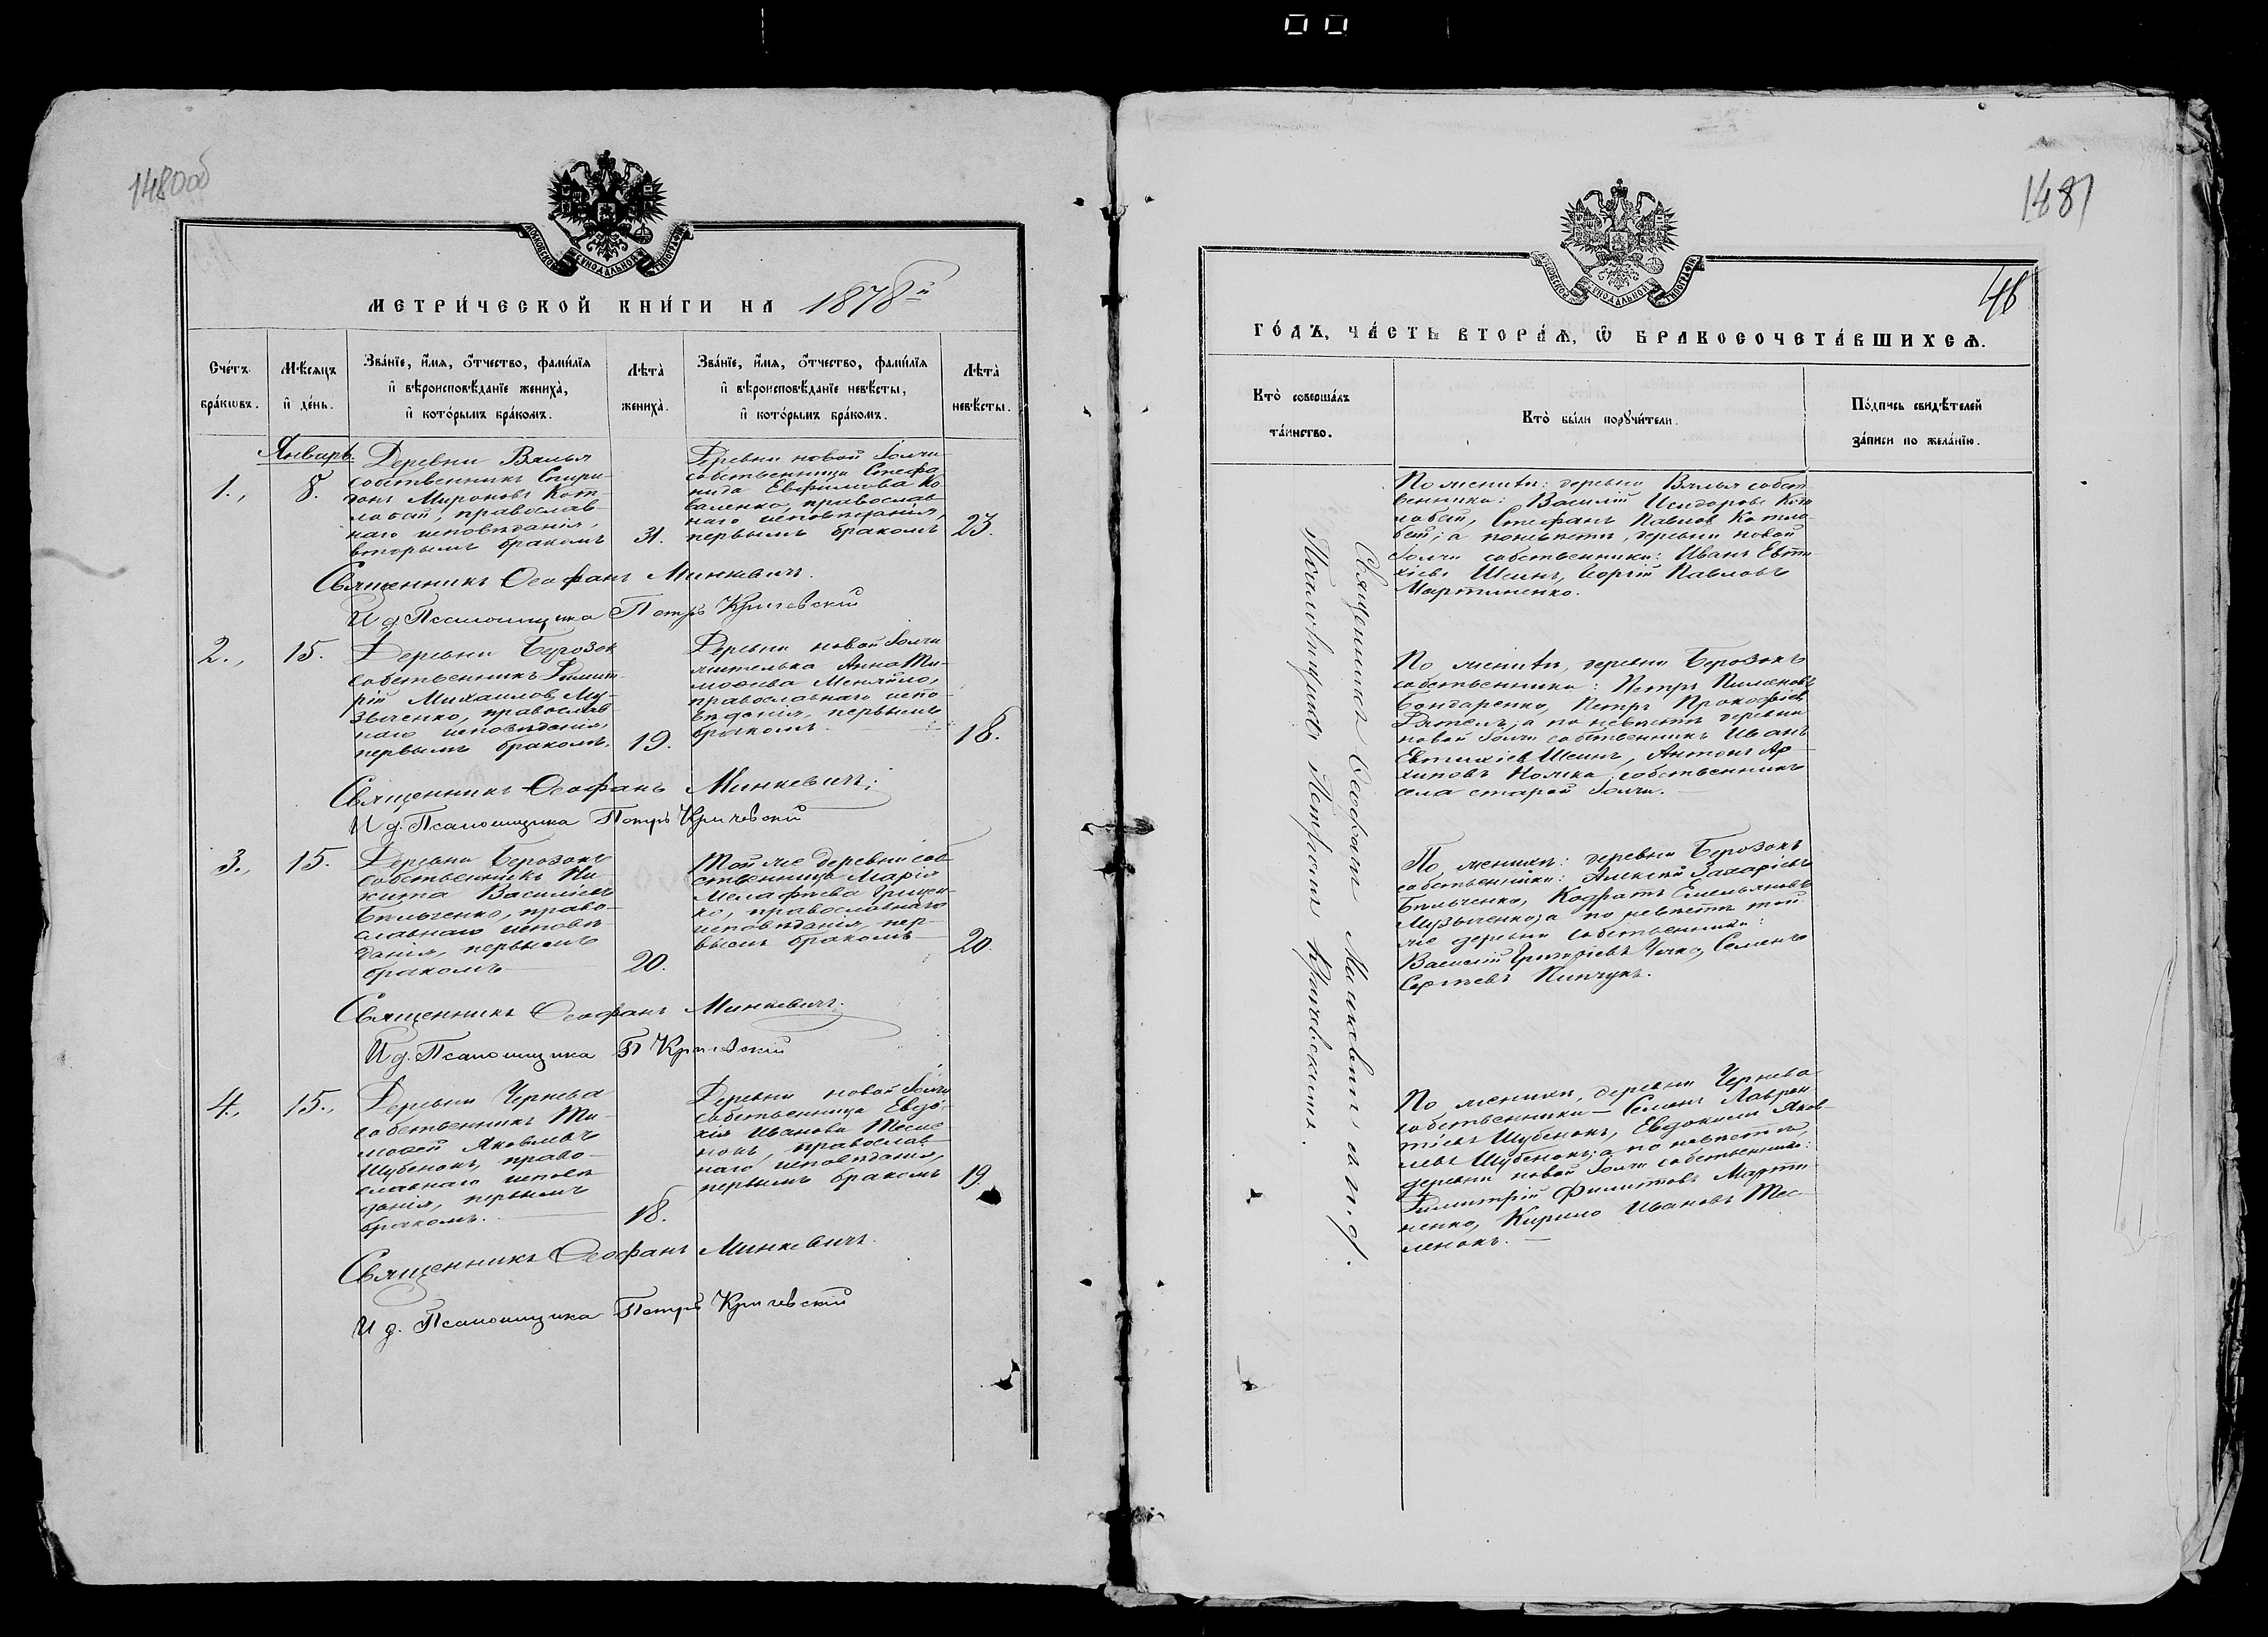 1480об
МОСКОВСКОЙ СѴНОДАЛЬНОЙ ТИПОГРАФІИ
МЕТРИ́ЧЕСКОЙ КНИ́ГИ НА 1878й
Сче́тъ
бра́кωвъ.
Мѣ́сяцъ
и҆ де́нь.
Зва́нїе, и҆́мя, о҆́тчество, фами́лїя
и҆ вѣроисповѣ́данїе жениха̀,
и҆ кото́рымъ бра́комъ.
Лѣ́та
жениха̀.
Зва́нїе, и҆́мя, о҆́тчество, фами́лїя
и҆ вѣроисповѣ́данїе невѣ́сты,
и҆ кото́рымъ бра́комъ.
Лѣ́та
невѣ́сты.
Январь.
1.,
8.
Деревни Вялья
собственникъ Спири-
донъ Мироновъ Кот-
лобай, православ-
наго исповѣданія,
вторымъ бракомъ
31.
Деревни новой Голчи
собственница Стефа-
нида Евфимова Ко-
валенко, православ-
наго исповѣданія,
первымъ бракомъ
23.
Священникъ Ѳеофанъ Минкевичъ.
И д. Псаломщика Петръ Кричевскій
2.,
15.
Деревни Берозок
собственникъ Димит-
рій Михаилов Му-
зыченко, православ-
наго исповѣданія,
первымъ бракомъ.
19.
Деревни новой Голчи
жителька Анна Ти-
моѳеева Меняйло,
православнаго испо-
вѣданія, первымъ
бракомъ.
18.
Священникъ Ѳеофанъ Минкевичъ;
И д. Псаломщика Петръ Кричевскій
3.,
15.
Деревни Берозокъ
собственникъ Ни-
кита Васильевъ
Бѣльченко, право-
славнаго исповѣ-
данія, первымъ
бракомъ
20.
Той же деревни соб-
ственница Марія
Грищен-
ко, православнаго
исповѣданія, пер-
вымъ бракомъ
20.
Священникъ Ѳеофанъ Минкевичъ.
И д. Псаломщика П Кричевскій
4.,
15.,
Деревни Чернева
собственникъ Ти-
моѳей Яковлевъ
Шубенокъ, право-
славнаго исповѣ-
данія, первымъ
бракомъ.
18.
Деревни новой Голчи
собственница Евдо-
кія Иванова Тесле-
нокъ, православ-
наго исповѣданія,
первымъ бракомъ
19.
Священникъ Ѳеофанъ Минкевичъ.
И д. Псаломщика Петръ Кричевскій
1481
МОСКОВСКОЙ СѴНОДАЛЬНОЙ ТИПОГРАФІИ
46
ГО́ДЪ, ЧА́СТЬ ВТОРА́Ѧ, Ѽ БРАКОСОЧЕТА́ВШИХСѦ.
Кто̀ соверша́лъ
та́инство.
Кто̀ бы́ли порꙋчи́тели.
По́дпись свидѣ́телей
за́писи по жела́нїю.
Священникъ Ѳеофанъ Минкевичъ съ и. д.
Псаломщика Петромъ Кричевскимъ.
По женихѣ: деревни Вялья собст-
венники: Василій Исидоровъ Кот-
лобай, Стефанъ Павлов Котло-
бай; а по невѣстѣ, деревни новой
Голчи собственники: Иванъ Евти-
хіевъ Шеинъ, Георгій Павловъ
Мартиненко.
По женихѣ, деревни Берозокъ
собственники: Петръ Пименовъ
Бондаренко, Петръ Прокофіев
Дятелъ; а по невѣстѣ деревни
новой Голчи собственникъ Иванъ
Евтихіев Шеинъ, Антонъ Ар-
хиповъ собственникъ
села старой Голчи.
По женихѣ: деревни Берозокъ
собственники: Алексій Захаріевъ
Бѣльченко, Кодратъ Емельяновъ
Музыченко; а по невѣстѣ той
же деревни собственники:
Василій Семенъ
Сергѣевъ Пинчукъ.
По женихѣ, деревни Чернева
собственники — Семенъ Лаврен-
тіевъ Шубенокъ, Евдокимъ Яков-
левъ Шубенокъ; а по невѣстѣ,
деревни новой Голчи собственники:
Димитрій Филиповъ Марти-
ненко, Кирило Ивановъ Тес-
ленокъ. —